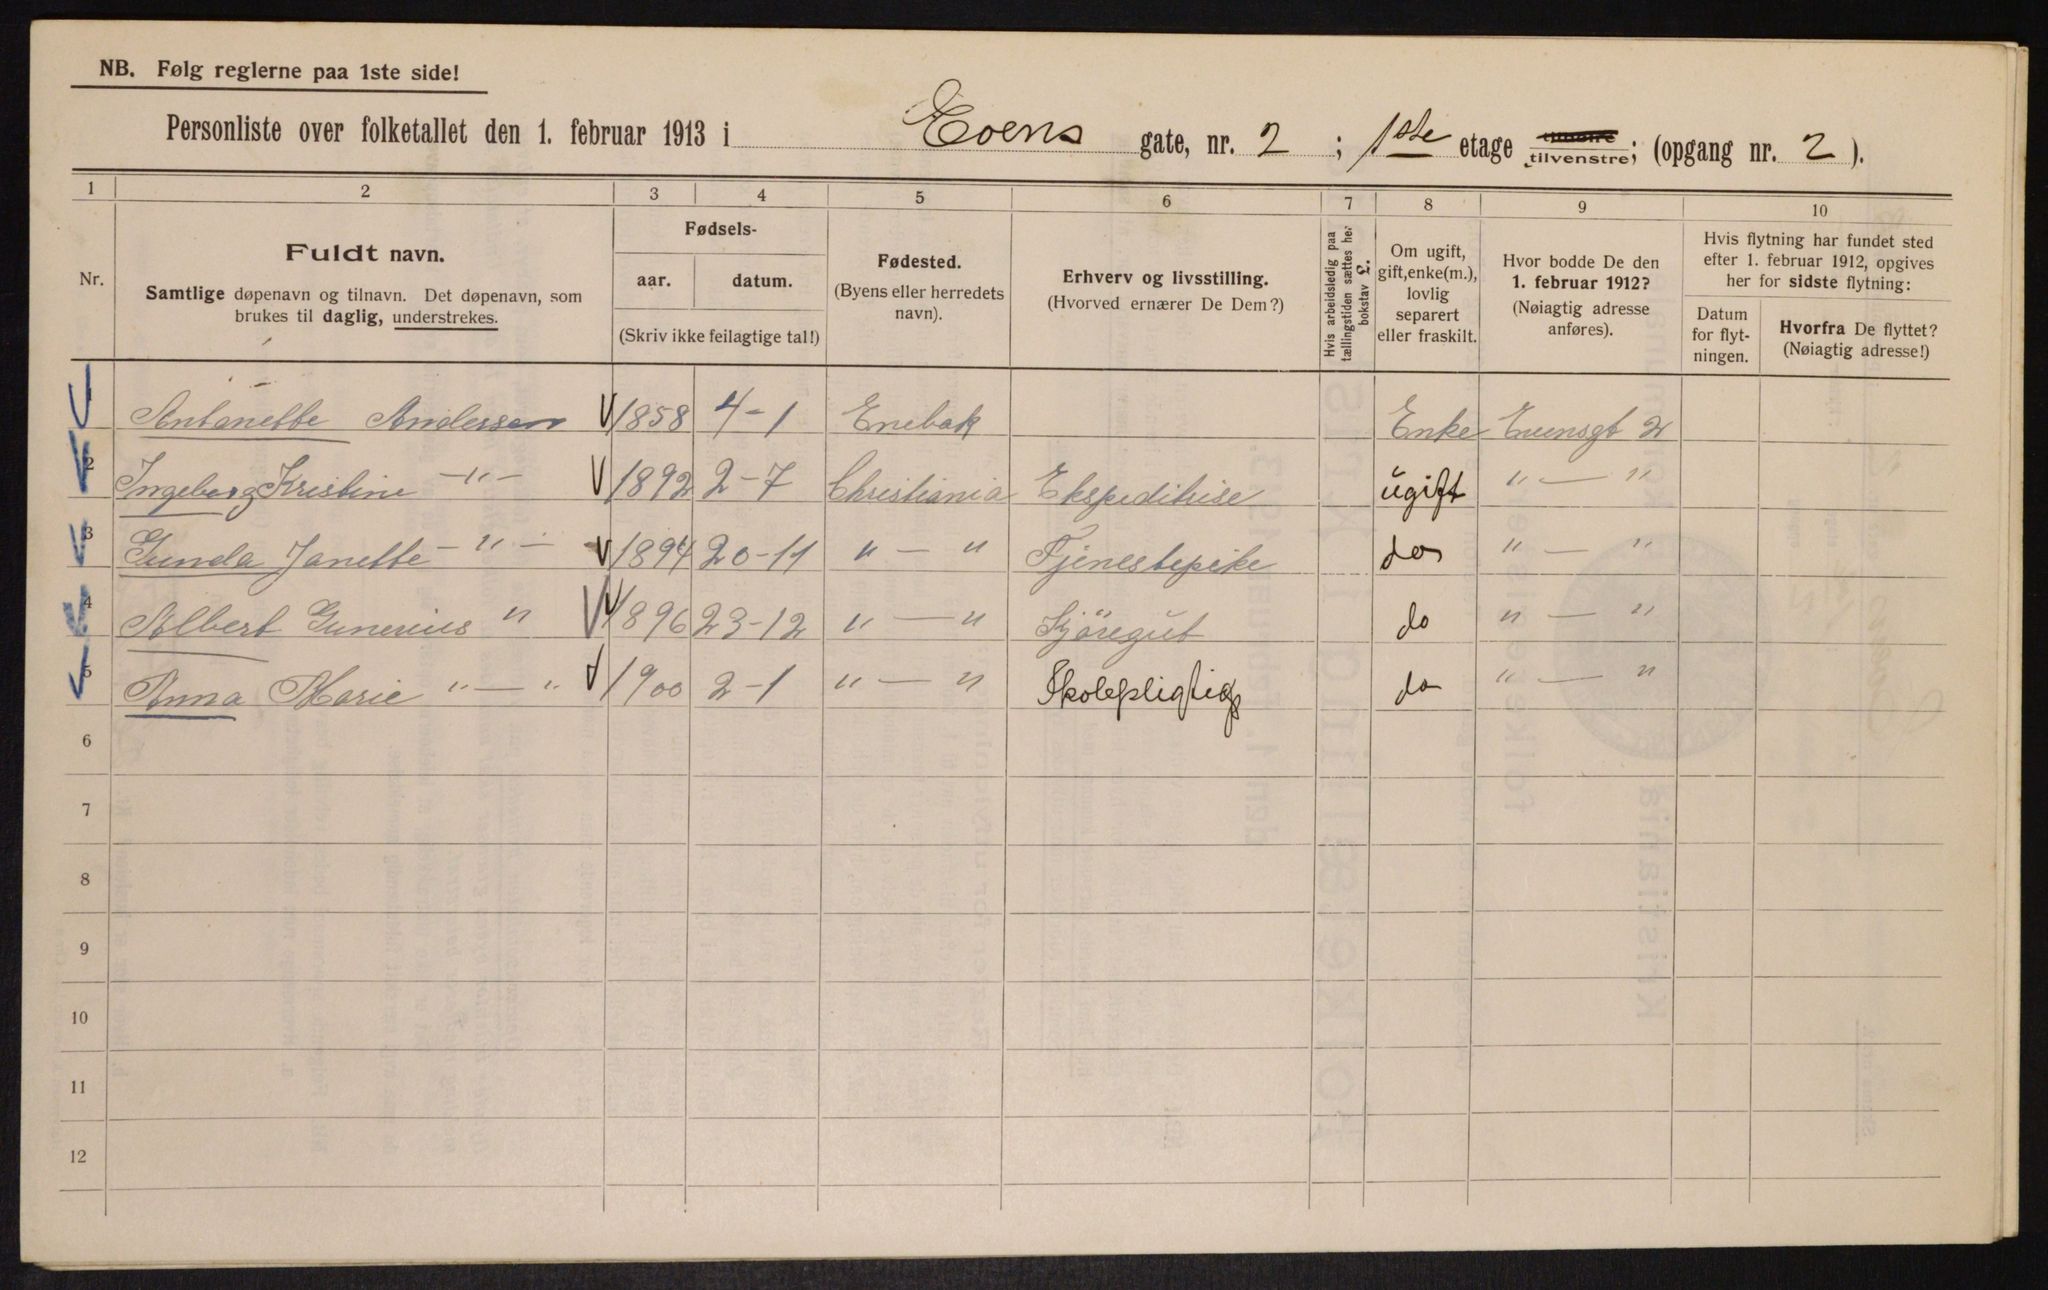 NB. Følg reglerne paa 1ste side!
Personliste over folketallet den 1. februar 1913 i Evens gate, nr. 2 ; 1ste etage tilhøire tilvenstre; (opgang nr. 2 ).
1 2 3 4 5 6 7 8 9 10
Nr.
Fuldt navn.
Samtlige døpenavn og tilnavn. Det døpenavn, som
brukes til daglig, understrekes.
Fødsels-
aar. datum.
(Skriv ikke feilagtige tal!)
Fødested.
(Byens eller herredets
navn).
Erhverv og livsstilling.
(Hvorved ernærer De Dem?)
Hvis arbeidsledig paa
tællingstiden sættes her
bokstav L.
Om ugift,
gift, enke(m.),
lovlig
separert
eller fraskilt.
Hvor bodde De den
1. februar 1912?
(Nøiagtig adresse
anføres).
Hvis flytning har fundet sted
efter 1. februar 1912, opgives
her for sidste flytning:
Datum
for flyt-
ningen.
Hvorfra De flyttet?
(Nøiagtig adresse!)
Antonette Andersen 1858 4-1 Enebak Enke Evensgt 2
2 Ingeborg Kristine -"- 1892 2-7 Christiania Ekspeditrise ugift " — "
3 Gunda Janette - " - 1894 20-11 " — " Tjenestepike do " — "
4 Albert Gunerius " 1896 23-12 " — " Sjöregut do " — "
5 Anna Marie " — " 1900 2-1 " — " Skolepligtig do " — "
6
7
8
9
10
11
12